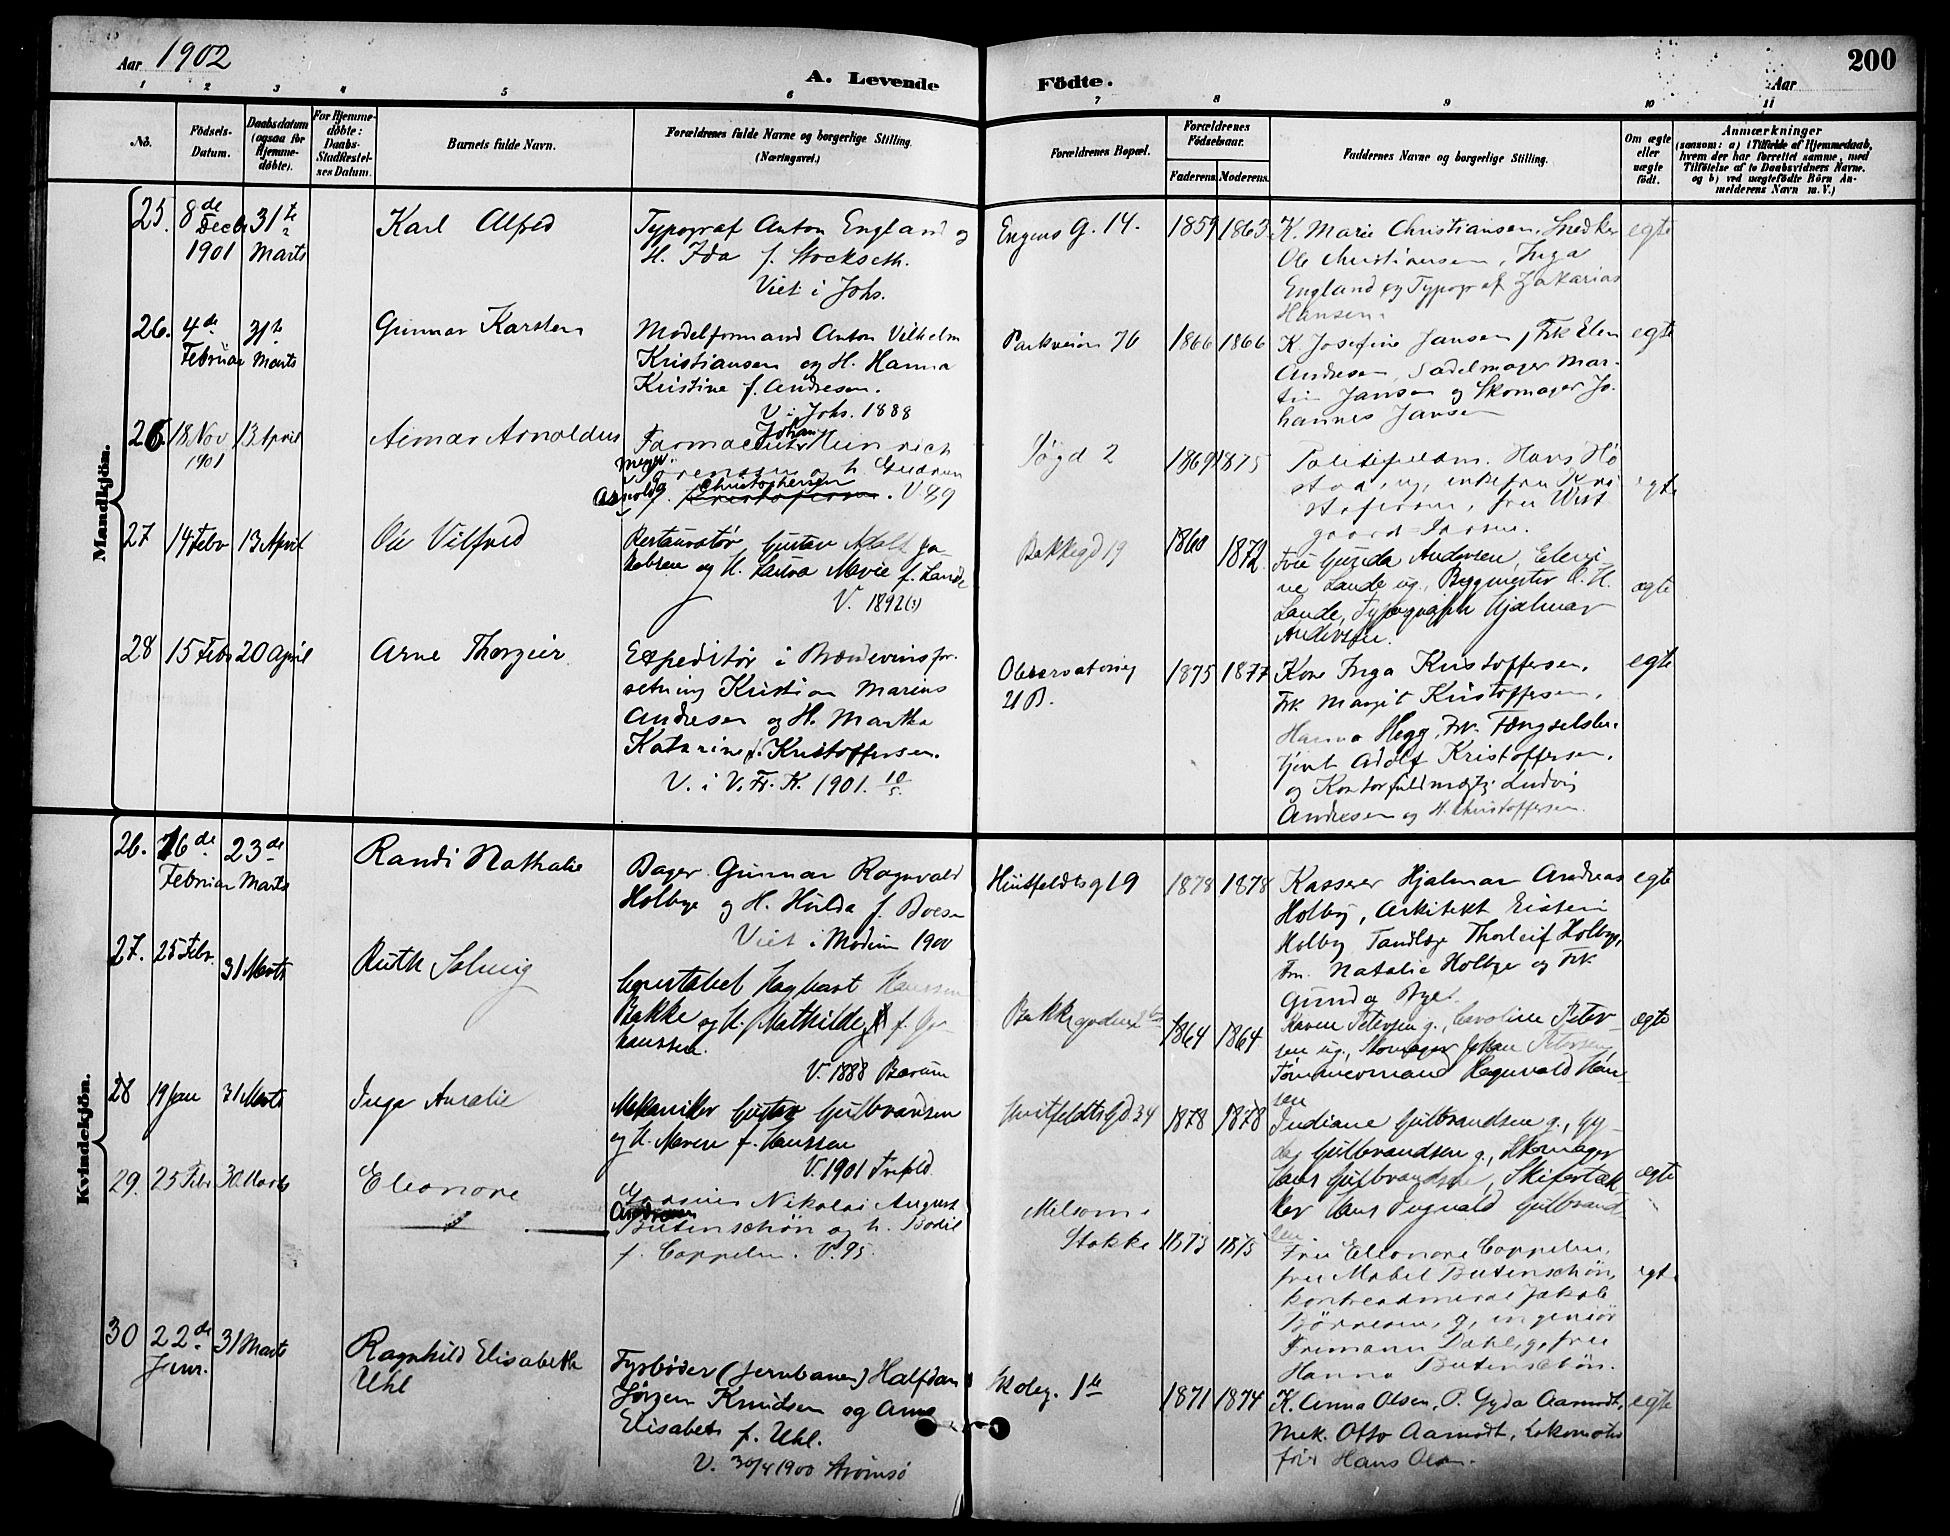 200
Aar 1902
A. Levende Födte.
Aar
1 2 3 4 5 6 7 8 9 10 11
No.
Födsels-
Datum.
Daabsdatum
(ogsaa for
Hjemme-
döbte).
For Hjemme-
döbte:
Daabs-
Stadfæstel-
ses Datum.
Barnets fulde Navn.
Forældrenes fulde Navne og borgerlige Stilling.
(Næringsvei.)
Forældrenes Bopæl.
Forældrenes
Födselsaar.
Faderens. Moderens.
Faddernes Navne og borgerlige Stilling.
Om ægte
eller
uægte
födt.
Anmærkninger
(saasom: a) i Tilfælde af Hjemmedaab,
hvem der har forrettet samme, med
Tilföielse af to Daabsvidners Navne.
og b) ved uægtefödte Börn An-
melderens Navn m. V.)
Mandkjön.
25. 8de
Decbr
1901
31te
Marts
Karl Alfred
Typograf Anton England og
H. Ida f. Stockseth.
Viet i Johs.
Engens G. 14.
1859 1863
K. Marie Christiansen, Snedker
Ole Christiansen, Inga
England og Typograf Zakarias
Hansen.
egte
26. 4de
Februar
31te
Marts
Gunnar Karsten
Modelformand Anton Vilhelm
Kristiansen og H. Hanna
Kristine f. Andresen.
V. i Johs. 1888
Parkveien 76
1866 1866
K. Josefine Jansen, Frk Elen
Andresen, Sadelmager Mar-
tin Jansen og Skomager Jo-
hannes Jansen
egte
26 18 Nov
1901
13 April
Arnoldus
Farmaceut Johan Heinrich
Meyer
og h. Gudrun
Arnolda f. Christophersen
V. 99
2
1869 1875
Hans
egte
27 14 Febr 13 April
Ole Vilfred
Restauratør Gustav Adolf Ja-
kobsen og H. Laura Marie f. Lande
V. 1892(?)
Bakkegd 19
1860
1872
Frue Gunda Andersen,
Lande ug., Bygmester O. H.
Lande, Typograph Hjalmar
Andersen.
ægte
28 15 Febr 20 April
Arne Thorgeir
Expeditør i Brændevinsfor-
retning Kristian Marius
Andresen og H. Martha
Katarine f. Kristoffersen.
V. i V. Fr. K. 1901. 10/5.
Observatorieg
21 B.
1875 1877
Kone Inga Kristoffersen,
Frk Margit Kristoffersen,
Hanna Hegg, Frk. Fængselsbe-
tjent Adolf Kristoffersen,
og Kontorfuldmægtig Ludvig
Andresen og H. Christoffersen.
egte
Kvindekjön.
26. 16de
Februar
23de
Marts
Randi Nathalie
Bager Gunnar Ragnvald
Holbye og H. Hilda f. Boesen
Viet i Modum 1900
Huitfeldtsg 19
1878 1878
Kasserer Hjalmar Andreas
Holby, Arkitekt Eistein
Holby Tandlæge Thorleif Holbye,
Fru. Natalie Holbye og Frk
Gunda Bye.
egte
27. 25 Febr. 31 Marts
Ruth Solveig
Constabel Hagbart Hanssen
Bakke og H. Mathilde f. Jo-
hanssen.
V. 1888 Bærum
1864 1864
Karen Petersen g., Caroline Peter-
sen ug., Skomager Johan Petersen,
Tømmermand Hagnvald Han-
sen
ægte
28 19 Jan 31 Marts
Inga Amalie
Mekaniker Gustav Gulbrandsen
og H. Maren f. Hanssen
V. 1901
Huitfeldtsgd 34
1878 1878
Indiane Gulbrandsen g., Gy-
da Gulbrandsen g., Skomager
Hans Gulbrandsen, Skifertæk-
ker Hans Ingvald Gulbrand-
sen.
ægte
29. 25 Febr 30 Marts
Eleonore
Nikolai August
Andresen
Butenschøn og h. Bodil
f. Cappelen. V. 95.
Melsom
Stokke
1873 1875
Frue Elleonore Cappelen,
frue Mabel Butenschøn,
kontreadmiral Jakob
Børresen, g, ingeniør
Frimann Dahl, g, frue
Hanna Butenschøn.
egte
30 22de
Janr.
31 Marts
Ragnhild Elisabeth
Uhl
Fyrbøder (Jernbanen) Halfdan
Jørgen Knudsen og Anna
Elisabeth f. Uhl.
V. 30/4 1900 Strømsø
Skoleg. 1b
1871 1874
K. Anna Olsen, P. Gyda Aamodt,
Mek. Otto Aamodt, Lokomotiv
fører Hans Olsen.
egte